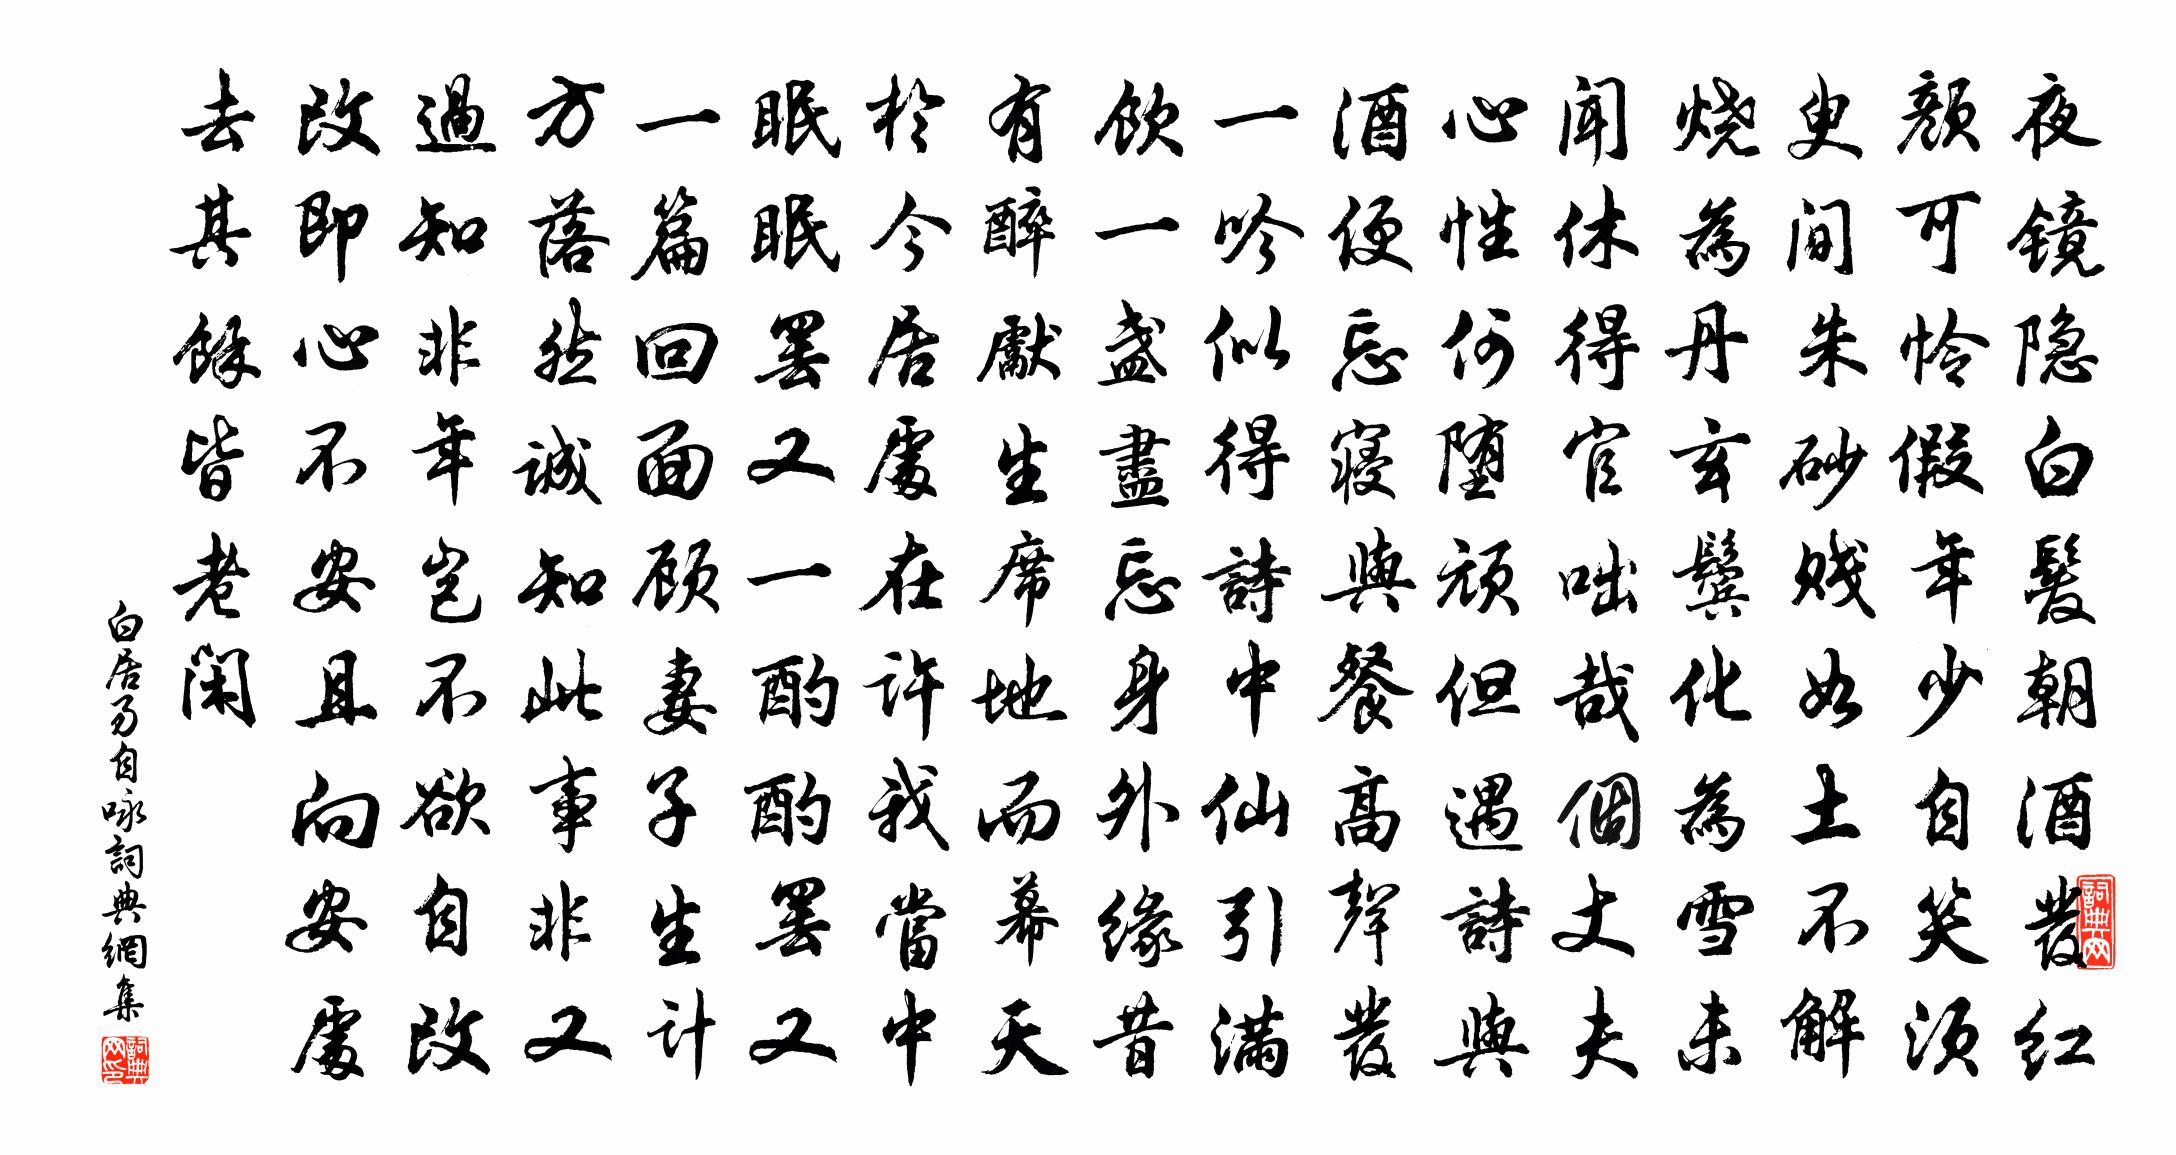 夜镜隐白髮朝酒發红
颜可怜假年少自笑须
臾间朱砂贱如土不解
烧為丹玄鬓化為雪未
闻休得官咄哉個丈夫
心性何堕顽但遇詩與
酒便忘寝與餐高聲發
一吟似得詩中仙引满
飲一盏盡忘身外缘昔
有醉獻生席地而幕天
於今居處在许我當中
眠眠罢又一酌酌罢又
一篇回面顾妻子生计
方落然诚知此事非又
過知非年岂不欲自改
改即心不安且向安處
去其餘皆老闲
白居易自咏詞典網集
詞典网
詞典网印